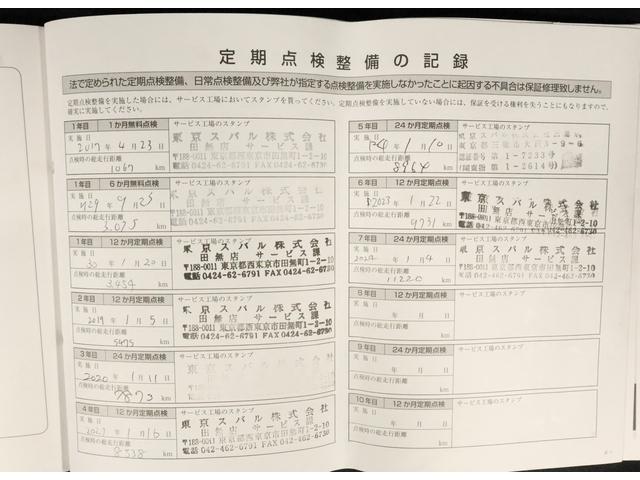 定期点検整備の記録
法で定められた定期点検整備、日常点検整備及び弊社が指定する点検整備を実施しなかったことに起因する不具合は保証修理致しません。
定期点検整備を実施した場合には、サービス工場においてスタンプを買ってください。定期点検整備を実施していない場合には、保証を受ける権利を失うことにもなりますので、
確実に実施してください。
1年目 1か月無料点検
サービス工場のスタンプ
実施日
2017年4月23日
点検時の総走行距離
1067 km
東京スバル株式会社
田無店 サービス課
〒188-0011 東京都西東京市田無町1-2-10
1年目 6か月無料点検
サービス工場のスタンプ
実施日
H29年9月23日
点検時の総走行距離
3,075 km
東京スバル株式会社
田無店 サービス課
〒188-0011 東京都西東京市田無町1-2-10
1年目 12か月定期点検
サービス工場のスタンプ
実施日
30年1月20日
点検時の総走行距離
3,454 km
東京スバル株式会社
田無店 サービス課
〒188-0011 東京都西東京市田無町1-2-10
電話0424-62-6791 FAX0424-62-6730
2年目 12か月定期点検
サービス工場のスタンプ
実施日
2019年1月5日
点検時の総走行距離
5475 km
東京スバル株式会社
田無店 サービス課
〒188-0011 東京都西東京市田無町1-2-10
電話0424-62-6791 FAX0424-62-6730
3年目 24か月定期点検
サービス工場のスタンプ
実施日
2020年1月11日
点検時の総走行距離
7873 km
4年目 12か月定期点検
サービス工場のスタンプ
実施日
年1月16日
点検時の総走行距離
8538 km
東京スバル株式会社
田無店 サービス課
〒188-0011 東京都西東京市田無町1-2-10
電話042-462-6791 FAX042-462-6730
5年目 24か月定期点検
サービス工場のスタンプ
実施日
年1月10日
点検時の総走行距離
km
東京スバル株式会社
認証番号 第1-7233号
第1-2614号
6年目 12か月定期点検
サービス工場のスタンプ
実施日
2023年1月22日
点検時の総走行距離
9731 km
東京スバル株式会社
田無店 サービス課
〒188-0011 東京都西東京市田無町1-2-10
7年目 24か月定期点検
サービス工場のスタンプ
実施日
2024年1月4日
点検時の総走行距離
11220 km
東京スバル株式会社
田無店 サービス課
〒188-0011 東京都西東京市田無町1-2-10
電話042-462-6791 FAX042-462-6730
8年目 12か月定期点検
サービス工場のスタンプ
実施日
年 月 日
点検時の総走行距離
km
9年目 24か月定期点検
サービス工場のスタンプ
実施日
年 月 日
点検時の総走行距離
km
10年目 12か月定期点検
サービス工場のスタンプ
実施日
年 月 日
点検時の総走行距離
km